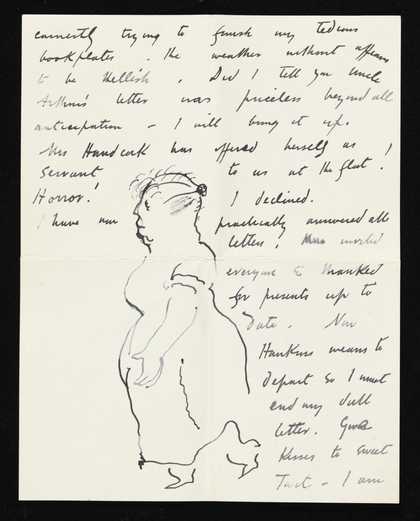 earnestly trying to finish my tedious
bookplates. The weather without appears
to be Hellish. Did I tell you Uncle
Arthur's letter was priceless beyond all
anticipation – I will bring it up.
Mrs Handcock has offered herself as
servant to us at the flat!
Horror! I declined.
I have now practically answered all
letters, invited
everyone & thanked
for presents up to
date. Now
Hankins means to
depart so I must
end my dull
letter. Give
kisses to sweet
– I am